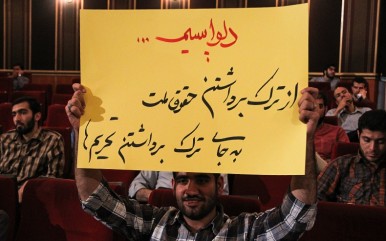 دلواپسیم ...
از ترک برداشتن حقوق ملت
به جای ترک برداشتن تحریم‌ها